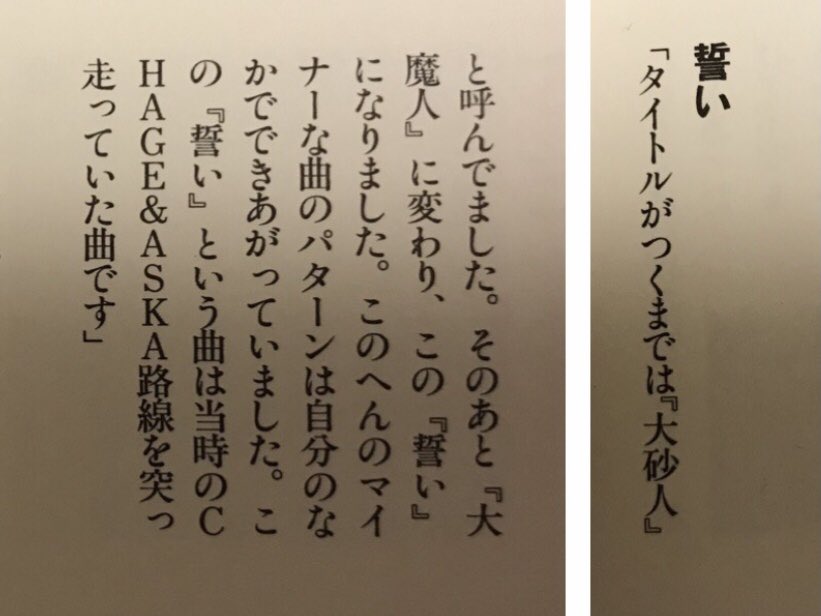 誓い
「タイトルがつくまでは『大砂人』
と呼んでました。そのあと『大
魔人』に変わり、この『誓い』
になりました。このへんのマイ
ナーな曲のパターンは自分のな
かでできあがっていました。こ
の『誓い』という曲は当時のC
HAGE&ASKA路線を突っ
走っていた曲です」